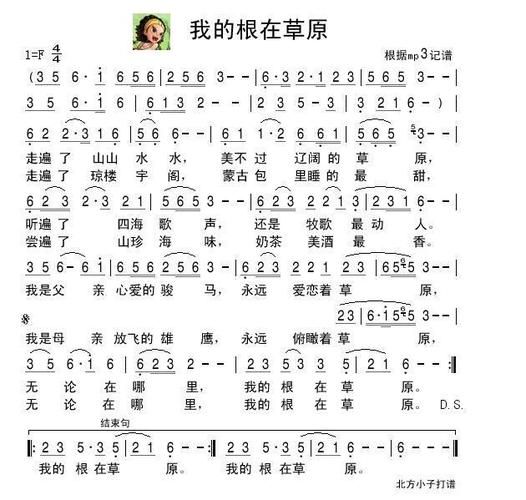 我的根在草原
1=F 4/4 根据mp3记谱
(3 5 6·1 | 6 5 6 | 2 5 6 3-- | 6·1 3 2·1 2 3 | 2 2 3 5 6 3-- |
2 3 5 6·1 | 6 1 3 2-- | 2·3 5 6·1 2· | 3 2 1 6--) |
6 2 2·3 1 6 | 5 6 6-- | 2·3 1 2 6 6 1 | 5 6 5 3-- |
走遍了 山山 水水, 美不过 辽阔的草 原,
走遍了 琼楼 宇阁, 蒙古包 里睡的最 甜,
6 2 3 2·3 2 1 | 5 5 6 3-- | 2·3 2 1 5 6 2 | 3 2 1 6-- |
听遍了 四海 歌声, 还是 牧歌最动 人。
尝遍了 山珍海 味, 奶茶 美酒最 香。
3 5 6 6·1 | 6 5 6 2 5 6 3-- | 6 2 3 2 1 2 3 | 6 5 4 5 3-- |
我是父 亲 心爱的骏 马, 永远 爱恋着草 原,
2 3 | 6·1 5 4 5 3-- |
我是母 亲 放飞的雄 鹰, 永远 俯瞰着草 原,
3 5 6·1 | 6 2 3 2-- | 2 3 5 3·5 | 2 2 1 6-- :‖
无 论 在 哪 里, 我的 根在草 原。
无 论 在 哪 里, 我的 根在草 原。 D.S.
结束句
‖: 2 3 5·3 5 2 1 6-- | 2 3 5·3 5 2 1 6-- :‖
我的 根在草 原。 我的 根在草 原。
北方小子打谱